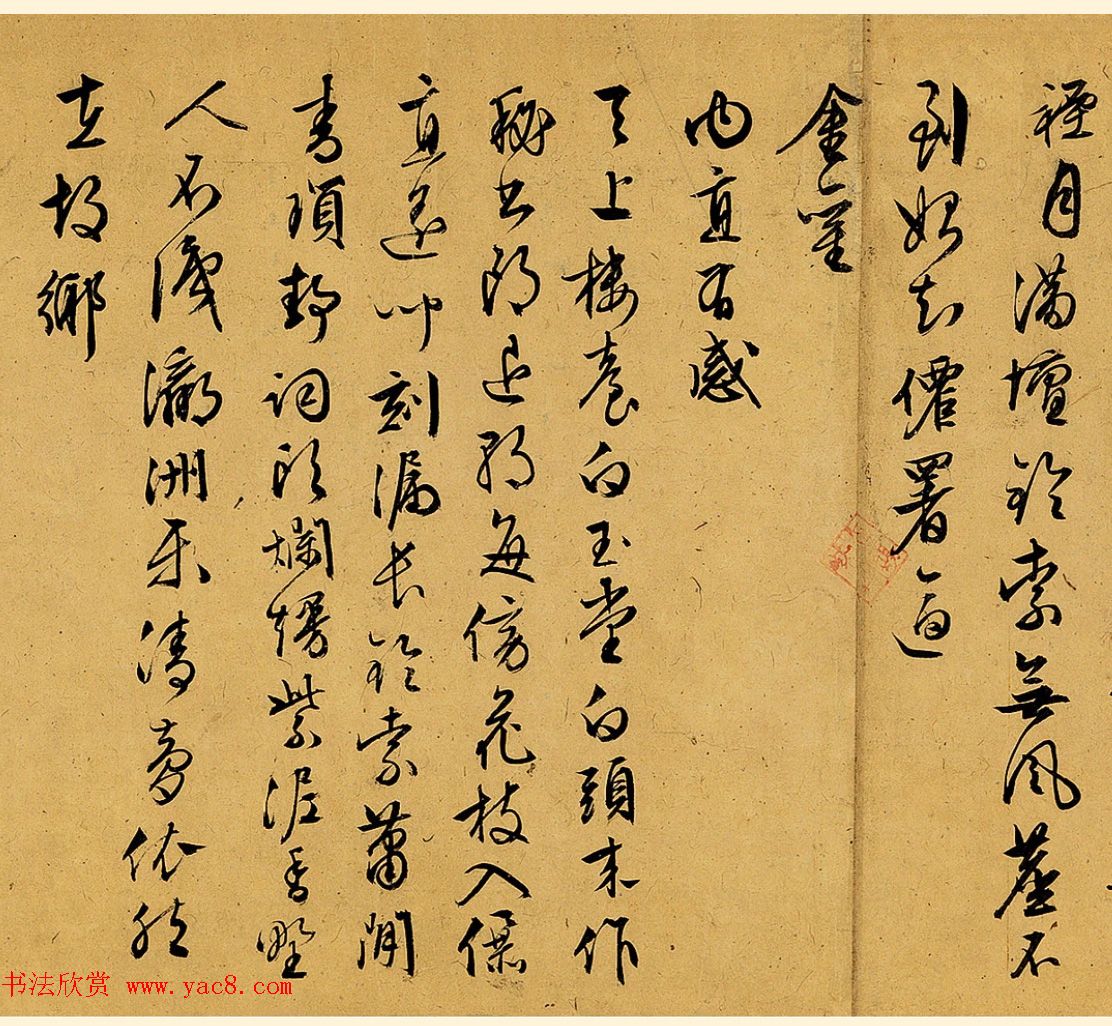 月滿壇鈴索無風塵不
到始知僊署逼
金鑾
內直有感
天上樓臺白玉堂白頭来作
秘書郎退朝每傍花枝入儤
直遙聞刻漏長鈴索蕭閒
青瑣靜詞頭爛熳紫泥香野
人不識瀛洲樂清夢依然
在故鄉
书法欣赏 www.yac8.com